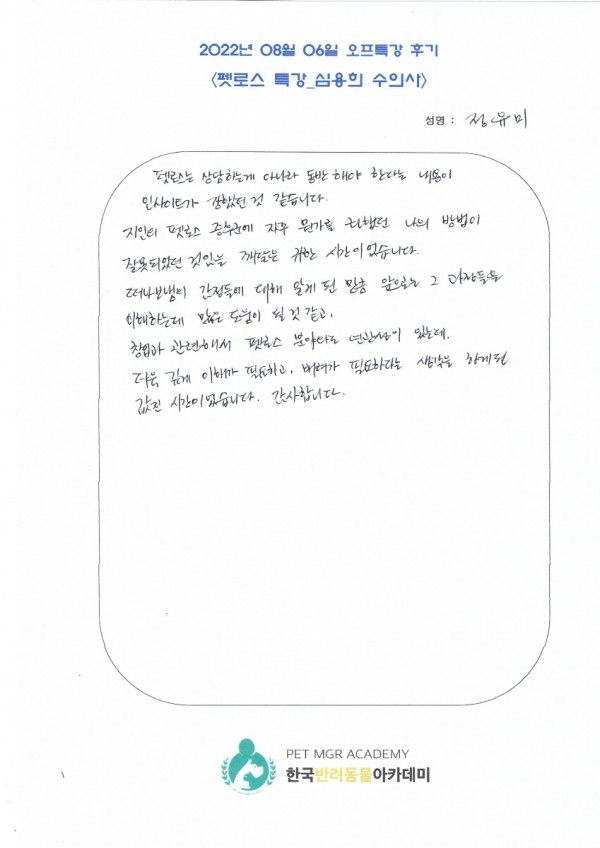 2022년 08월 06일 오프특강 후기
<펫로스 특강_심용희 수의사>
성명 : 정유미
펫로스는 상담하는게 아니라 동반해야 한다는 내용이
인사이트가 강했던 것 같습니다.
지인의 펫로스 증후군에 자꾸 뭔가를 하려했던 나의 방법이
잘못되었던 것임을 깨달은 귀한 시간이었습니다.
떠나보냄의 감정들에 대해 알게 된 만큼 앞으로는 그 과정들을
이해하는데 많은 도움이 될 것 같고,
창업과 관련해서 펫로스 분야와도 연관성이 있는데.
더욱 깊게 이해가 필요하고, 배려가 필요하다는 생각을 하게 된
값진 시간이었습니다. 감사합니다.
PET MGR ACADEMY
한국반려동물아카데미